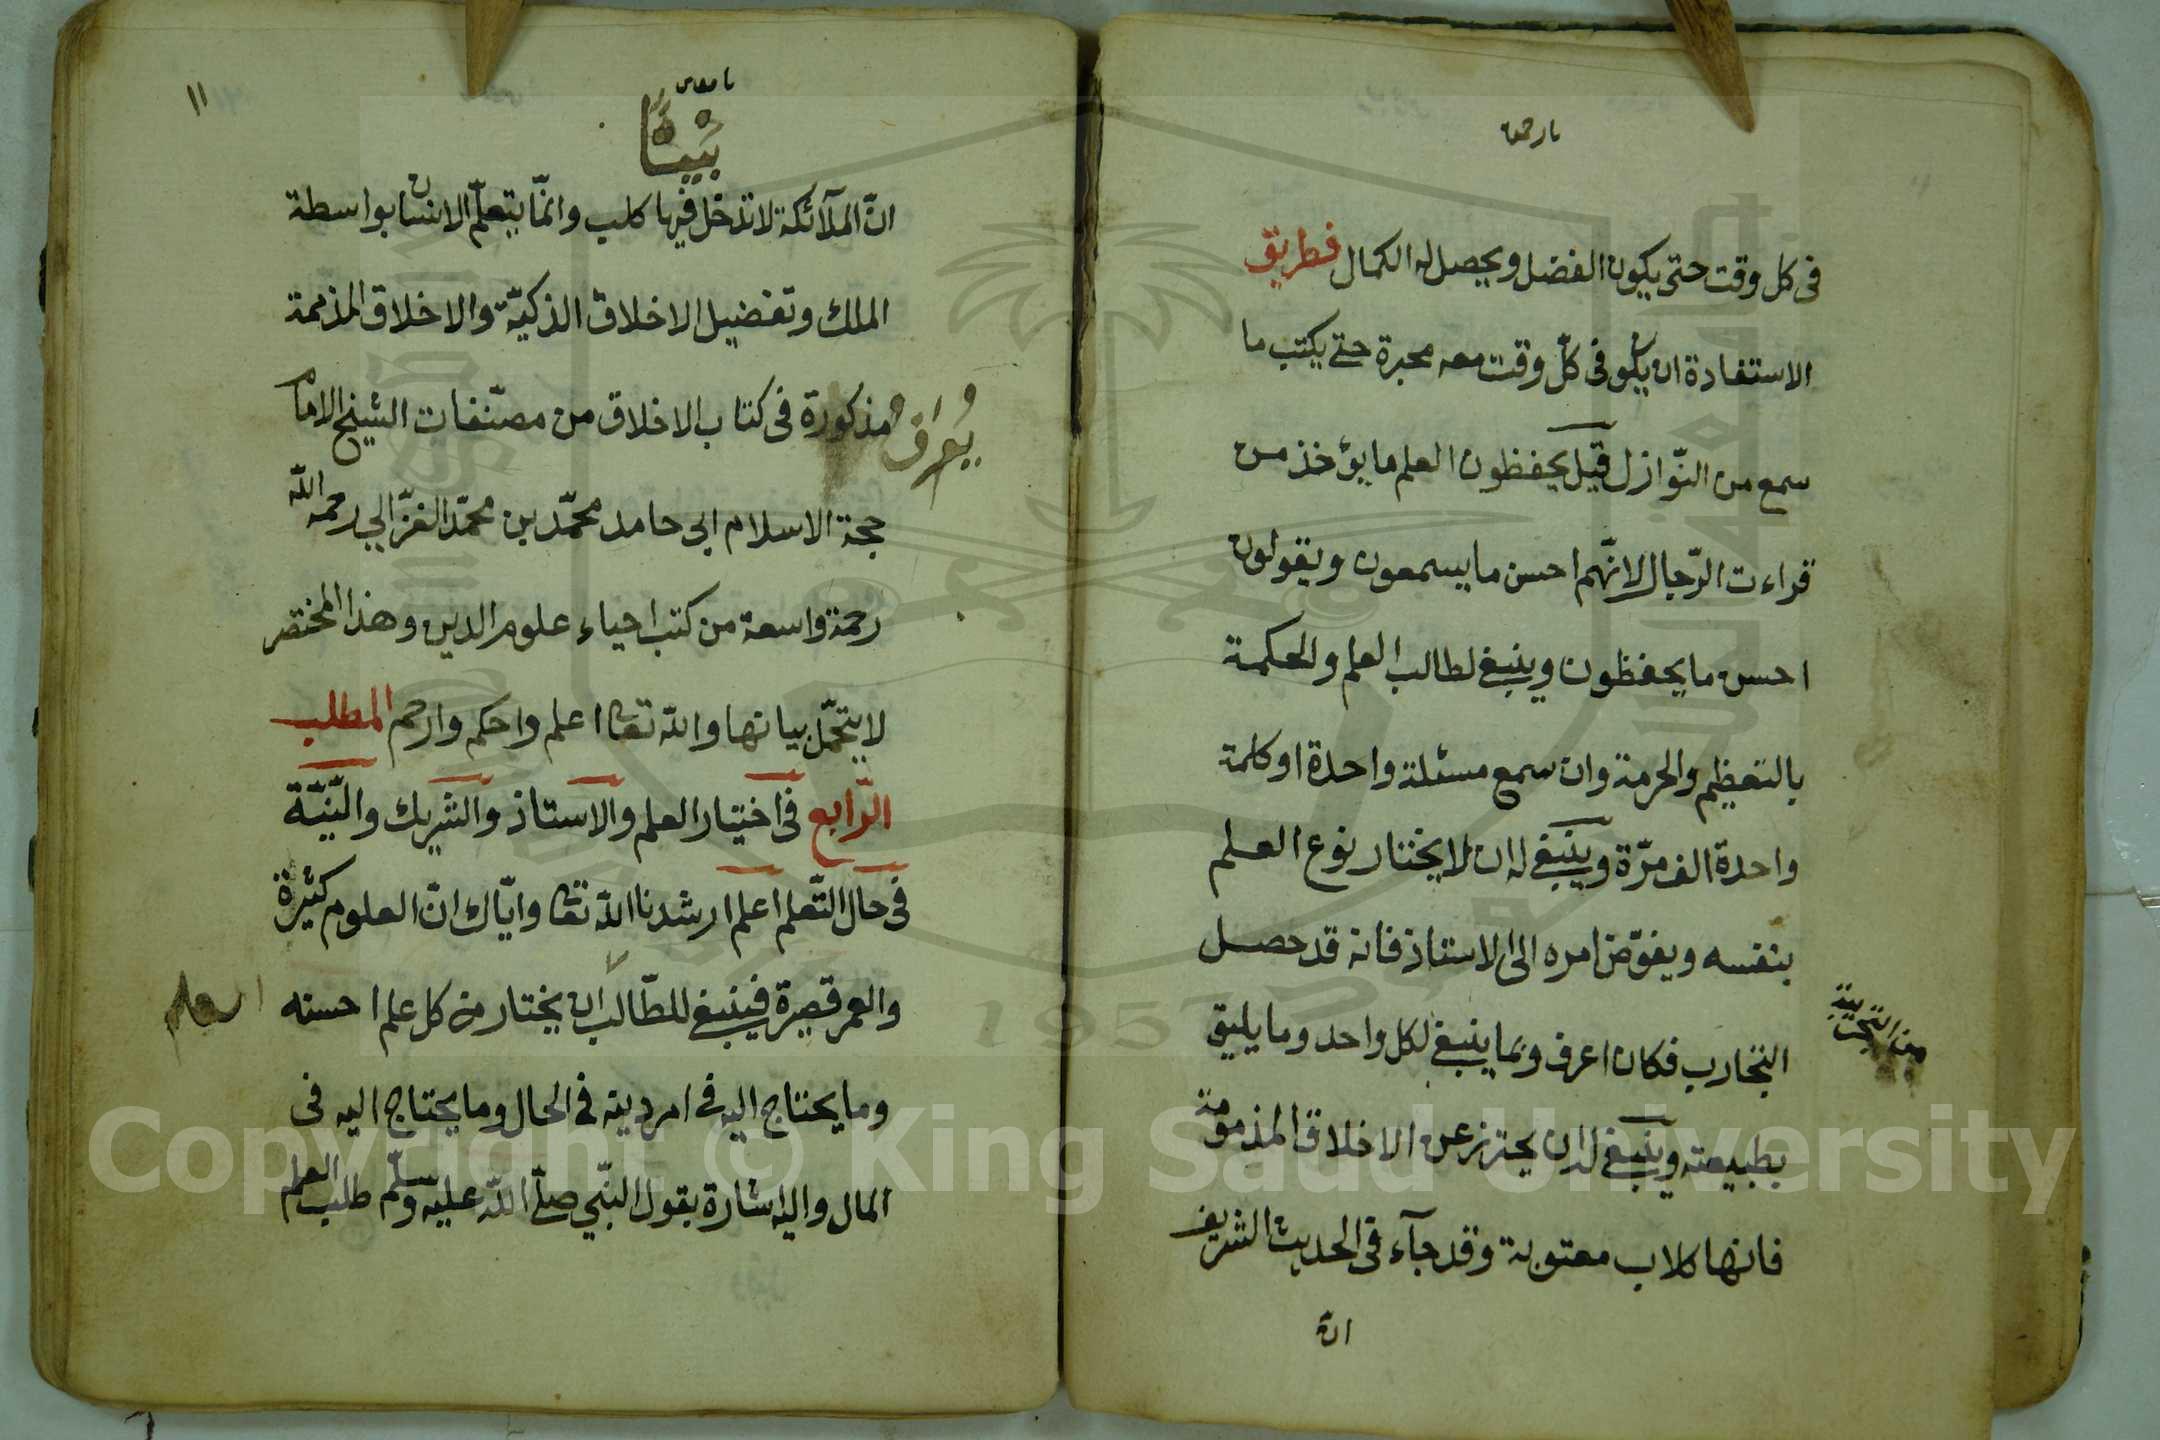 في كل وقت حتى يكون الفضل ويحصل له الكمال فطريق
الاستفادة ان يكون في كلّ وقت معه محبرة حتى يكتب ما
سمع من النّوازل قيل يحفظون العلم ما يؤخذ من
قراءت الرّجال لانّهم احسن ما يسمعون ويقولون
احسن ما يحفظون وينبغي لطالب العلم والحكمة
بالتعظيم والحرمة وان سمع مسئلة واحدة او كلمة
واحدة الف مرّة وينبغي له ان لا يختار نوع العلم
بنفسه ويفوّض امره الى الاستاذ فانه قد حصل
التجارب فكان اعرف وبما ينبغي لكل واحد وما يليق
بطبيعته وينبغي له ان يحترز عن الاخلاق المذمومة
فانها كلاب معنوية وقد جآء في الحديث الشريف
انّ
١١
انّ الملآئكة لا تدخل فيها كلب وانّما يتعلّم الانسان بواسطة
الملك وتفضيل الاخلاق الذكيّة والاخلاق المذممة
مذكورة في كتاب الاخلاق من مصنّفات الشيخ الامام
حجة الاسلام ابي حامد محمّد بن محمّد الغزّالي رحمه اللّه
رحمة واسعة من كتب احياء علوم الدين وهذا المختصر
لا يتحمّل بيانها واللّه تعا اعلم واحكم وارحم المطلب
الرّابع في اختيار العلم والاستاذ والشريك والنّيّة
في حال التّعلم اعلم ارشدنا اللّه تعا وايّاك انّ العلوم كثيرة
والعمر قصيرة فينبغي للطّالب ان يختار من كل علم احسنه
وما يحتاج اليه في امر دينه في الحال وما يحتاج اليه في
المال واليه اشارة بقول النّبي صلّى اللّه عليه وسلّم طلب العلم
Copyright © King Saud University
1957